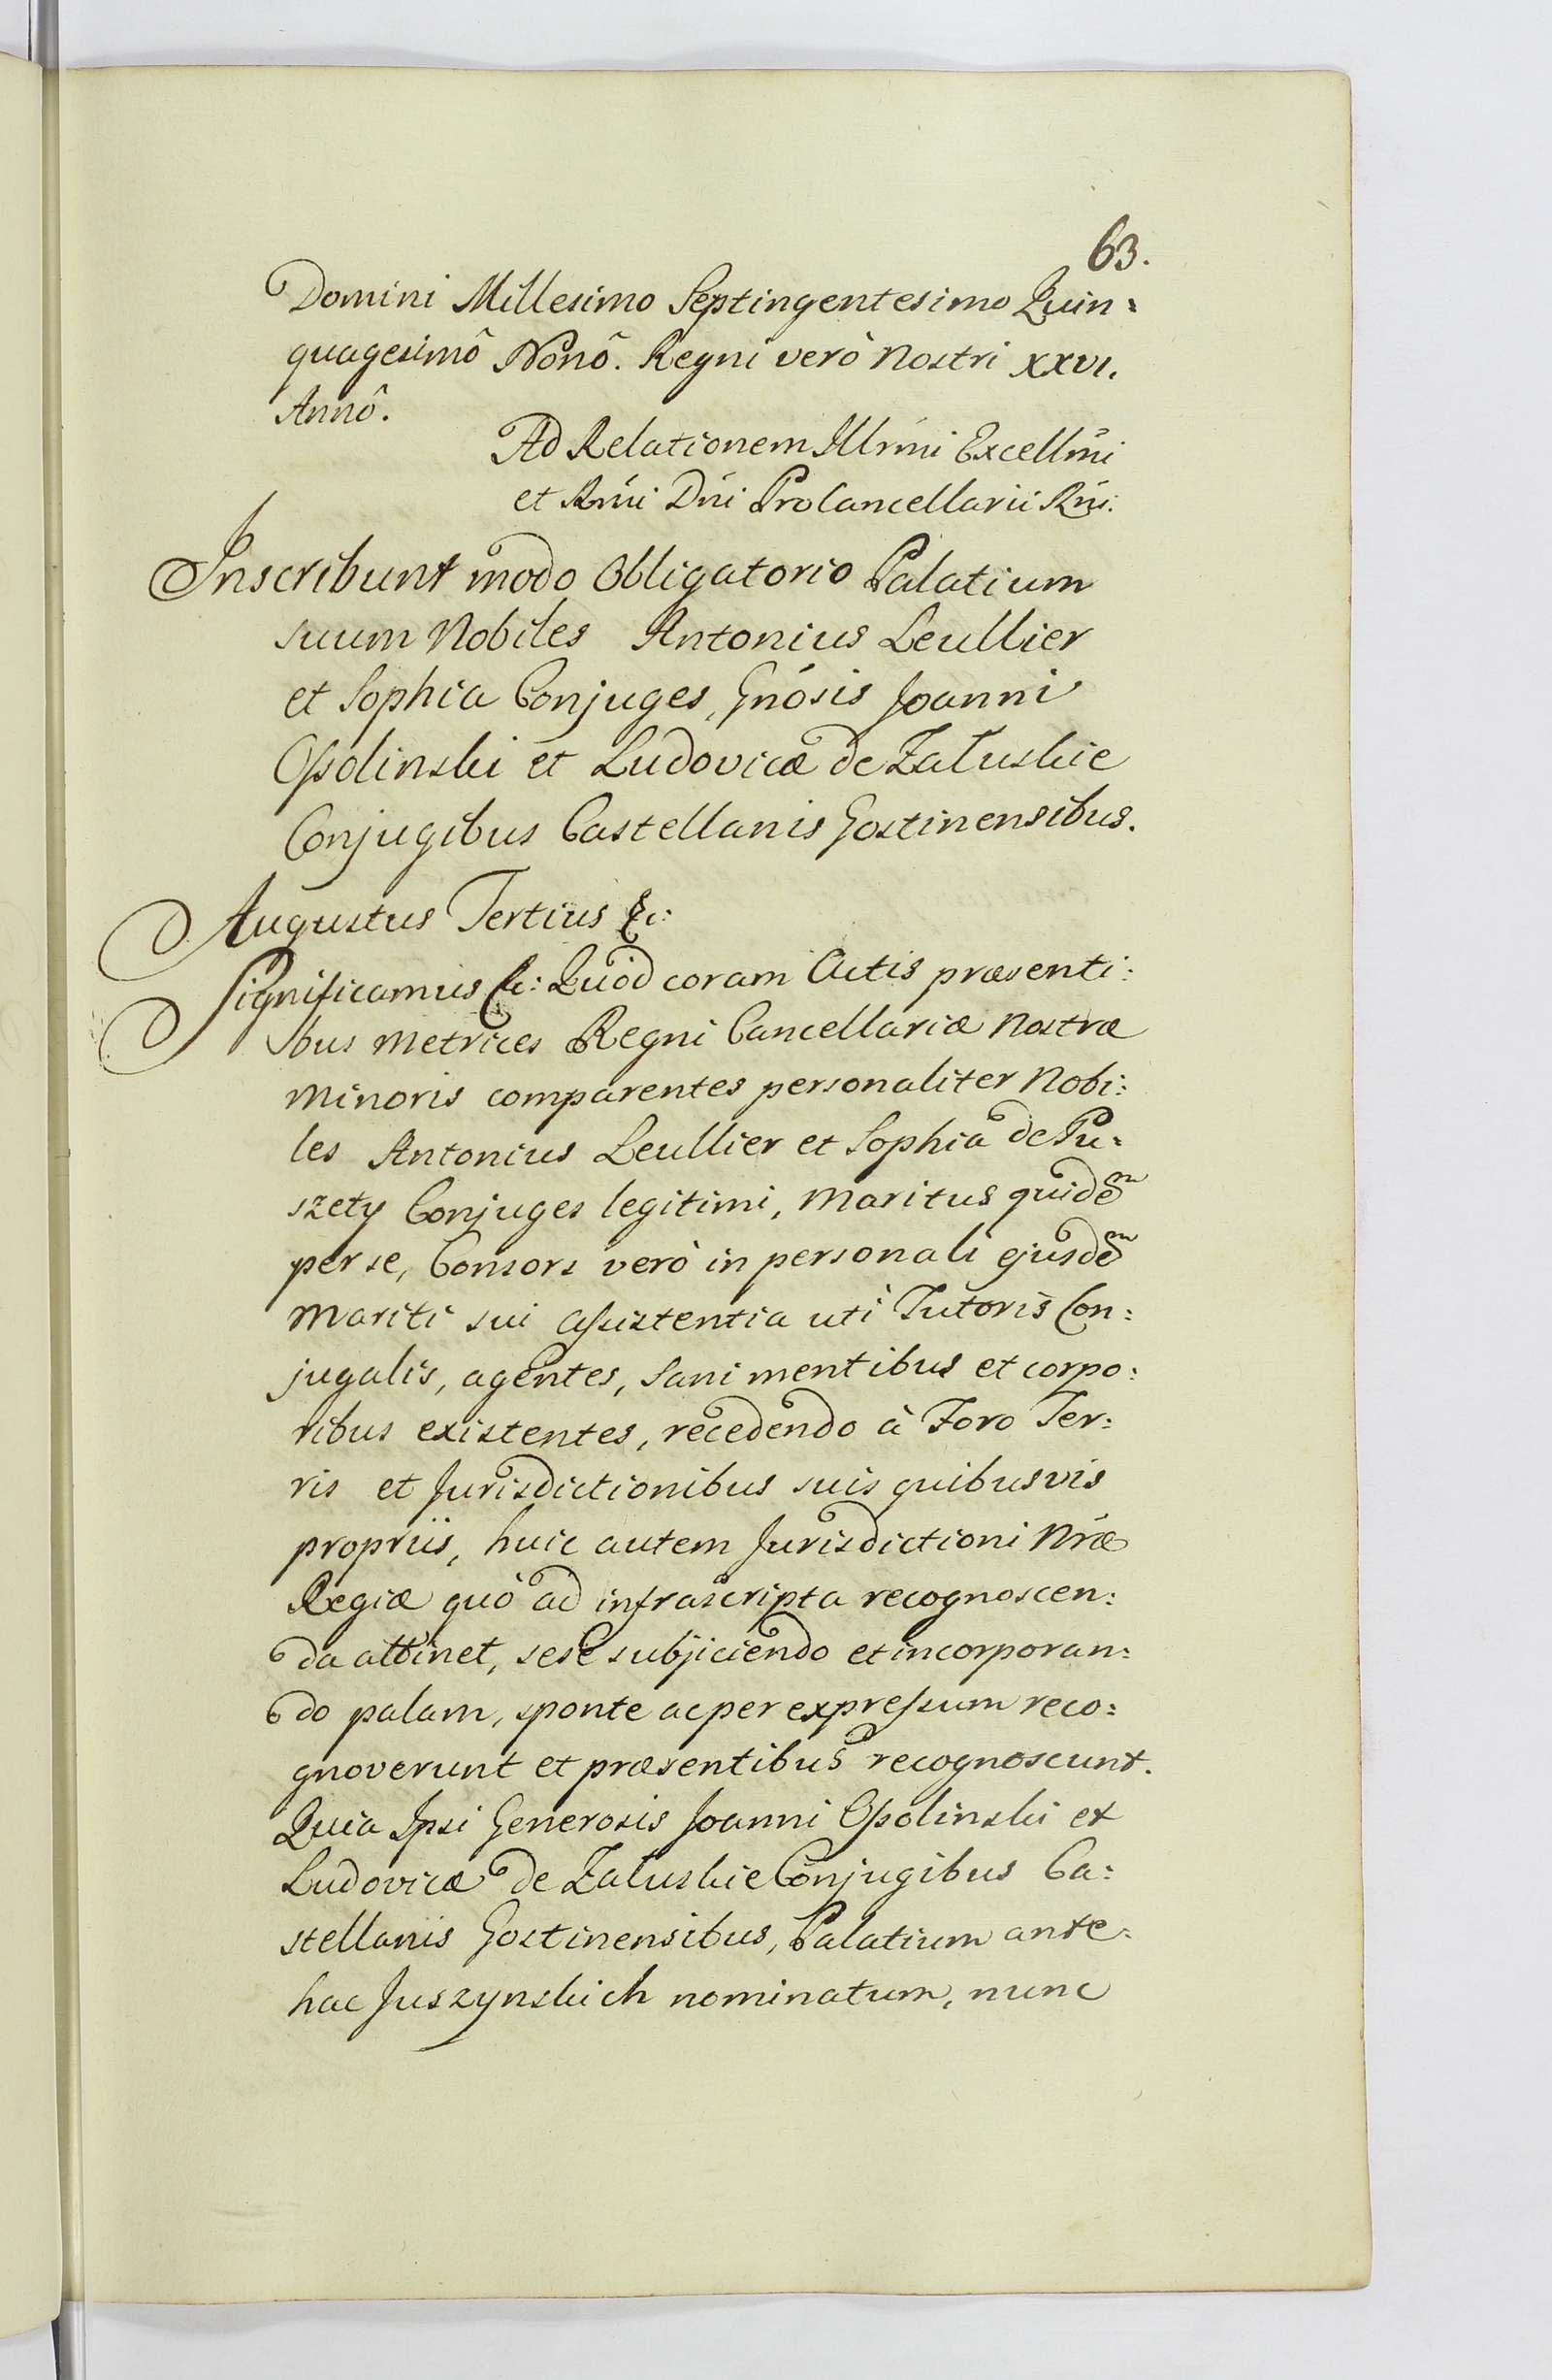 63.
Domini Millesimo Septingentesimo Quin:
quagesimô Nonô. Regni verò Nostri XXVI.
Annô.
Ad Relationem Illm̃i Excellm̃i
et Rm̃i Dñi ProCancellarii Rñi:
Inscribunt modo Obligatorio Palatium
suum Nobiles Antonius Leullier
et Sophia Conjuges, Gñosis Joanni
Opolinski et Ludovicæ de Załuskie
Conjugibus Castellanis Gostinensibus.
Augustus Tertius &c:
Significamus &c: Quòd coram Actis præsenti:
bus Metrices Regni Cancellariæ Nostræ
Minoris comparentes personaliter Nobi:
les Antonius Leullier et Sophia de Pu:
szety Conjuges legitimi, Maritus quidem
per se, Consors verò in personali ejusdem
Mariti sui assistentia uti Tutoris Con:
jugalis, agentes, sani mentibus et corpo:
ribus existentes, recedendo à Foro Ter:
ris et Jurisdictionibus suis quibusvis
propriis, huic autem Jurisdictioni Nr̃æ
Regiæ quò ad infrascripta recognoscen:
da attinet, sese subjiciendo et incorporan:
do palam, sponte ac per expressum reco:
gnoverunt et præsentibus recognoscunt.
Quia Ipsi Generosis Joanni Opolinski et
Ludovicæ de Załuskie Conjugibus Ca:
stellanis Gostinensibus, Palatium ante:
hac Juszynskich nominatum, nunc